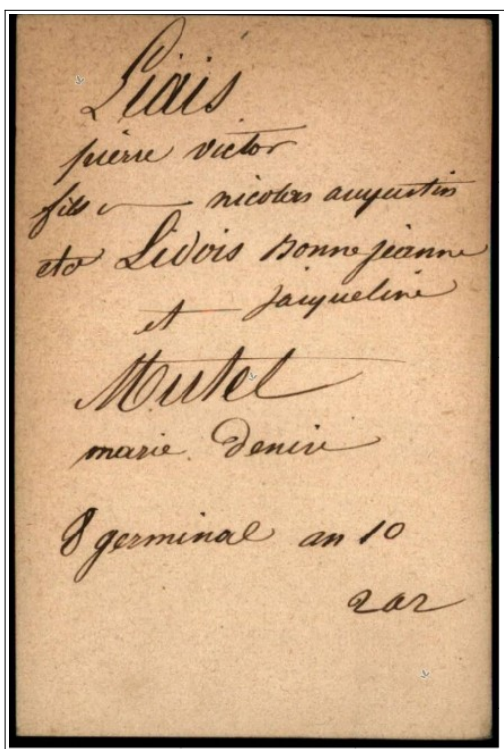 Liais
pierre victor
fils nicolas augustin
et Lidois Bonne jeanne
et jacqueline
Mutel
marie Denise
8 germinal an 10
2 ar